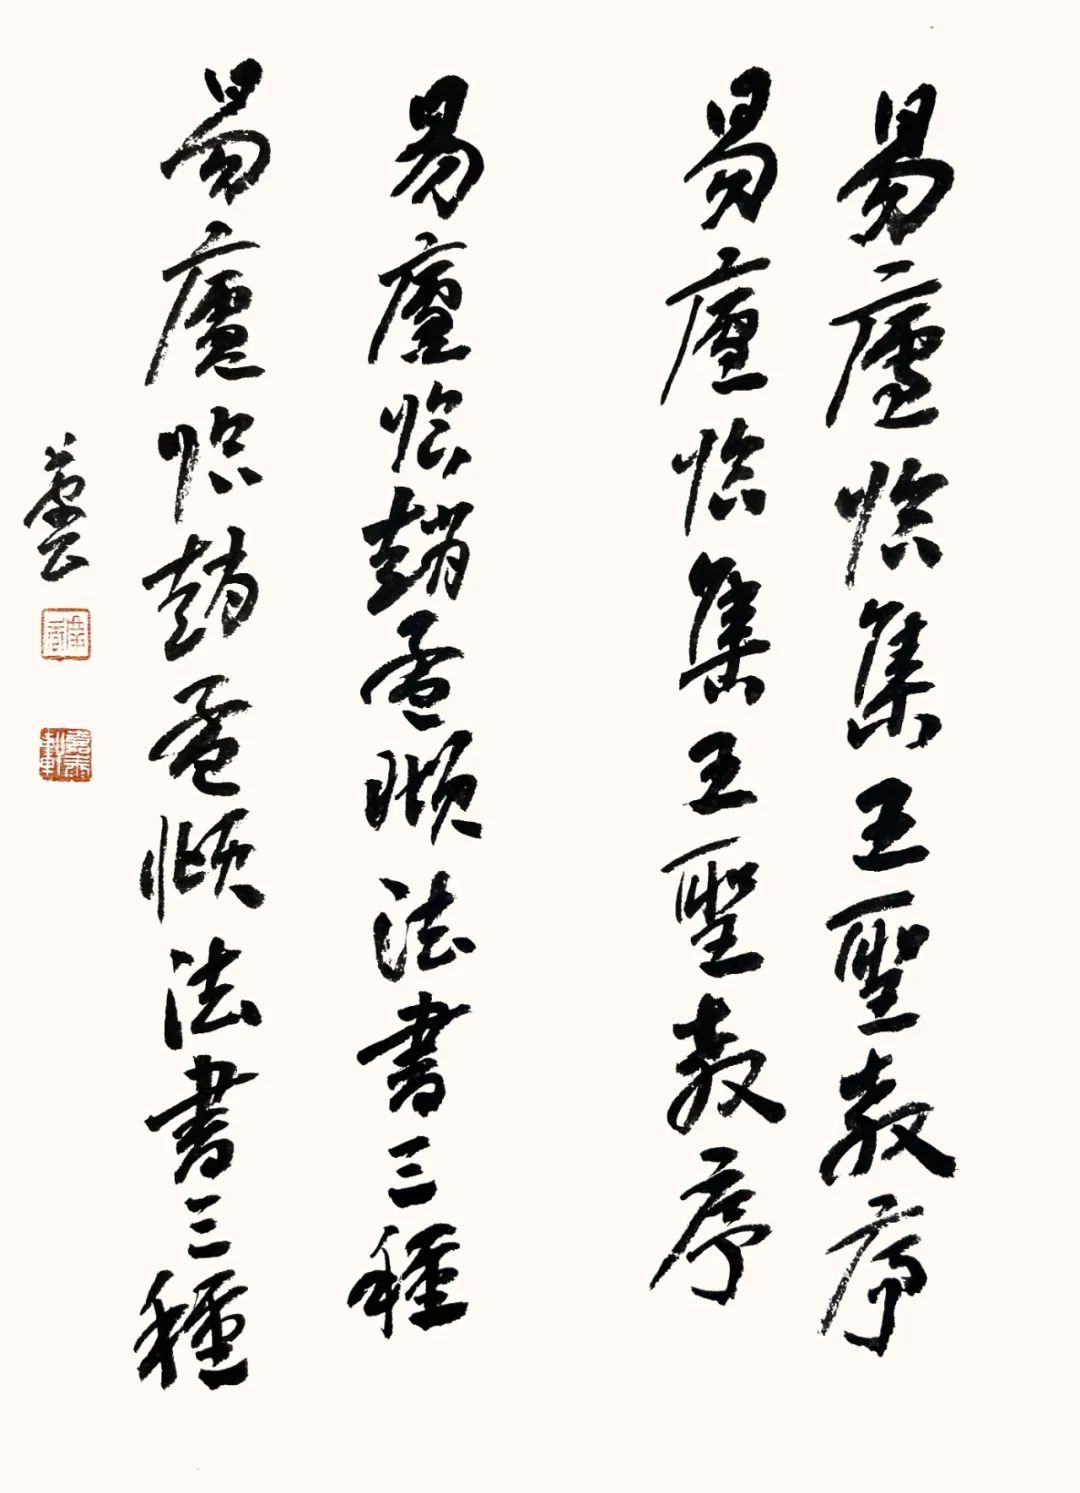 易廬臨集王聖教序
易廬臨集王聖教序
易廬臨趙孟頫法書三種
易廬臨趙孟頫法書三種